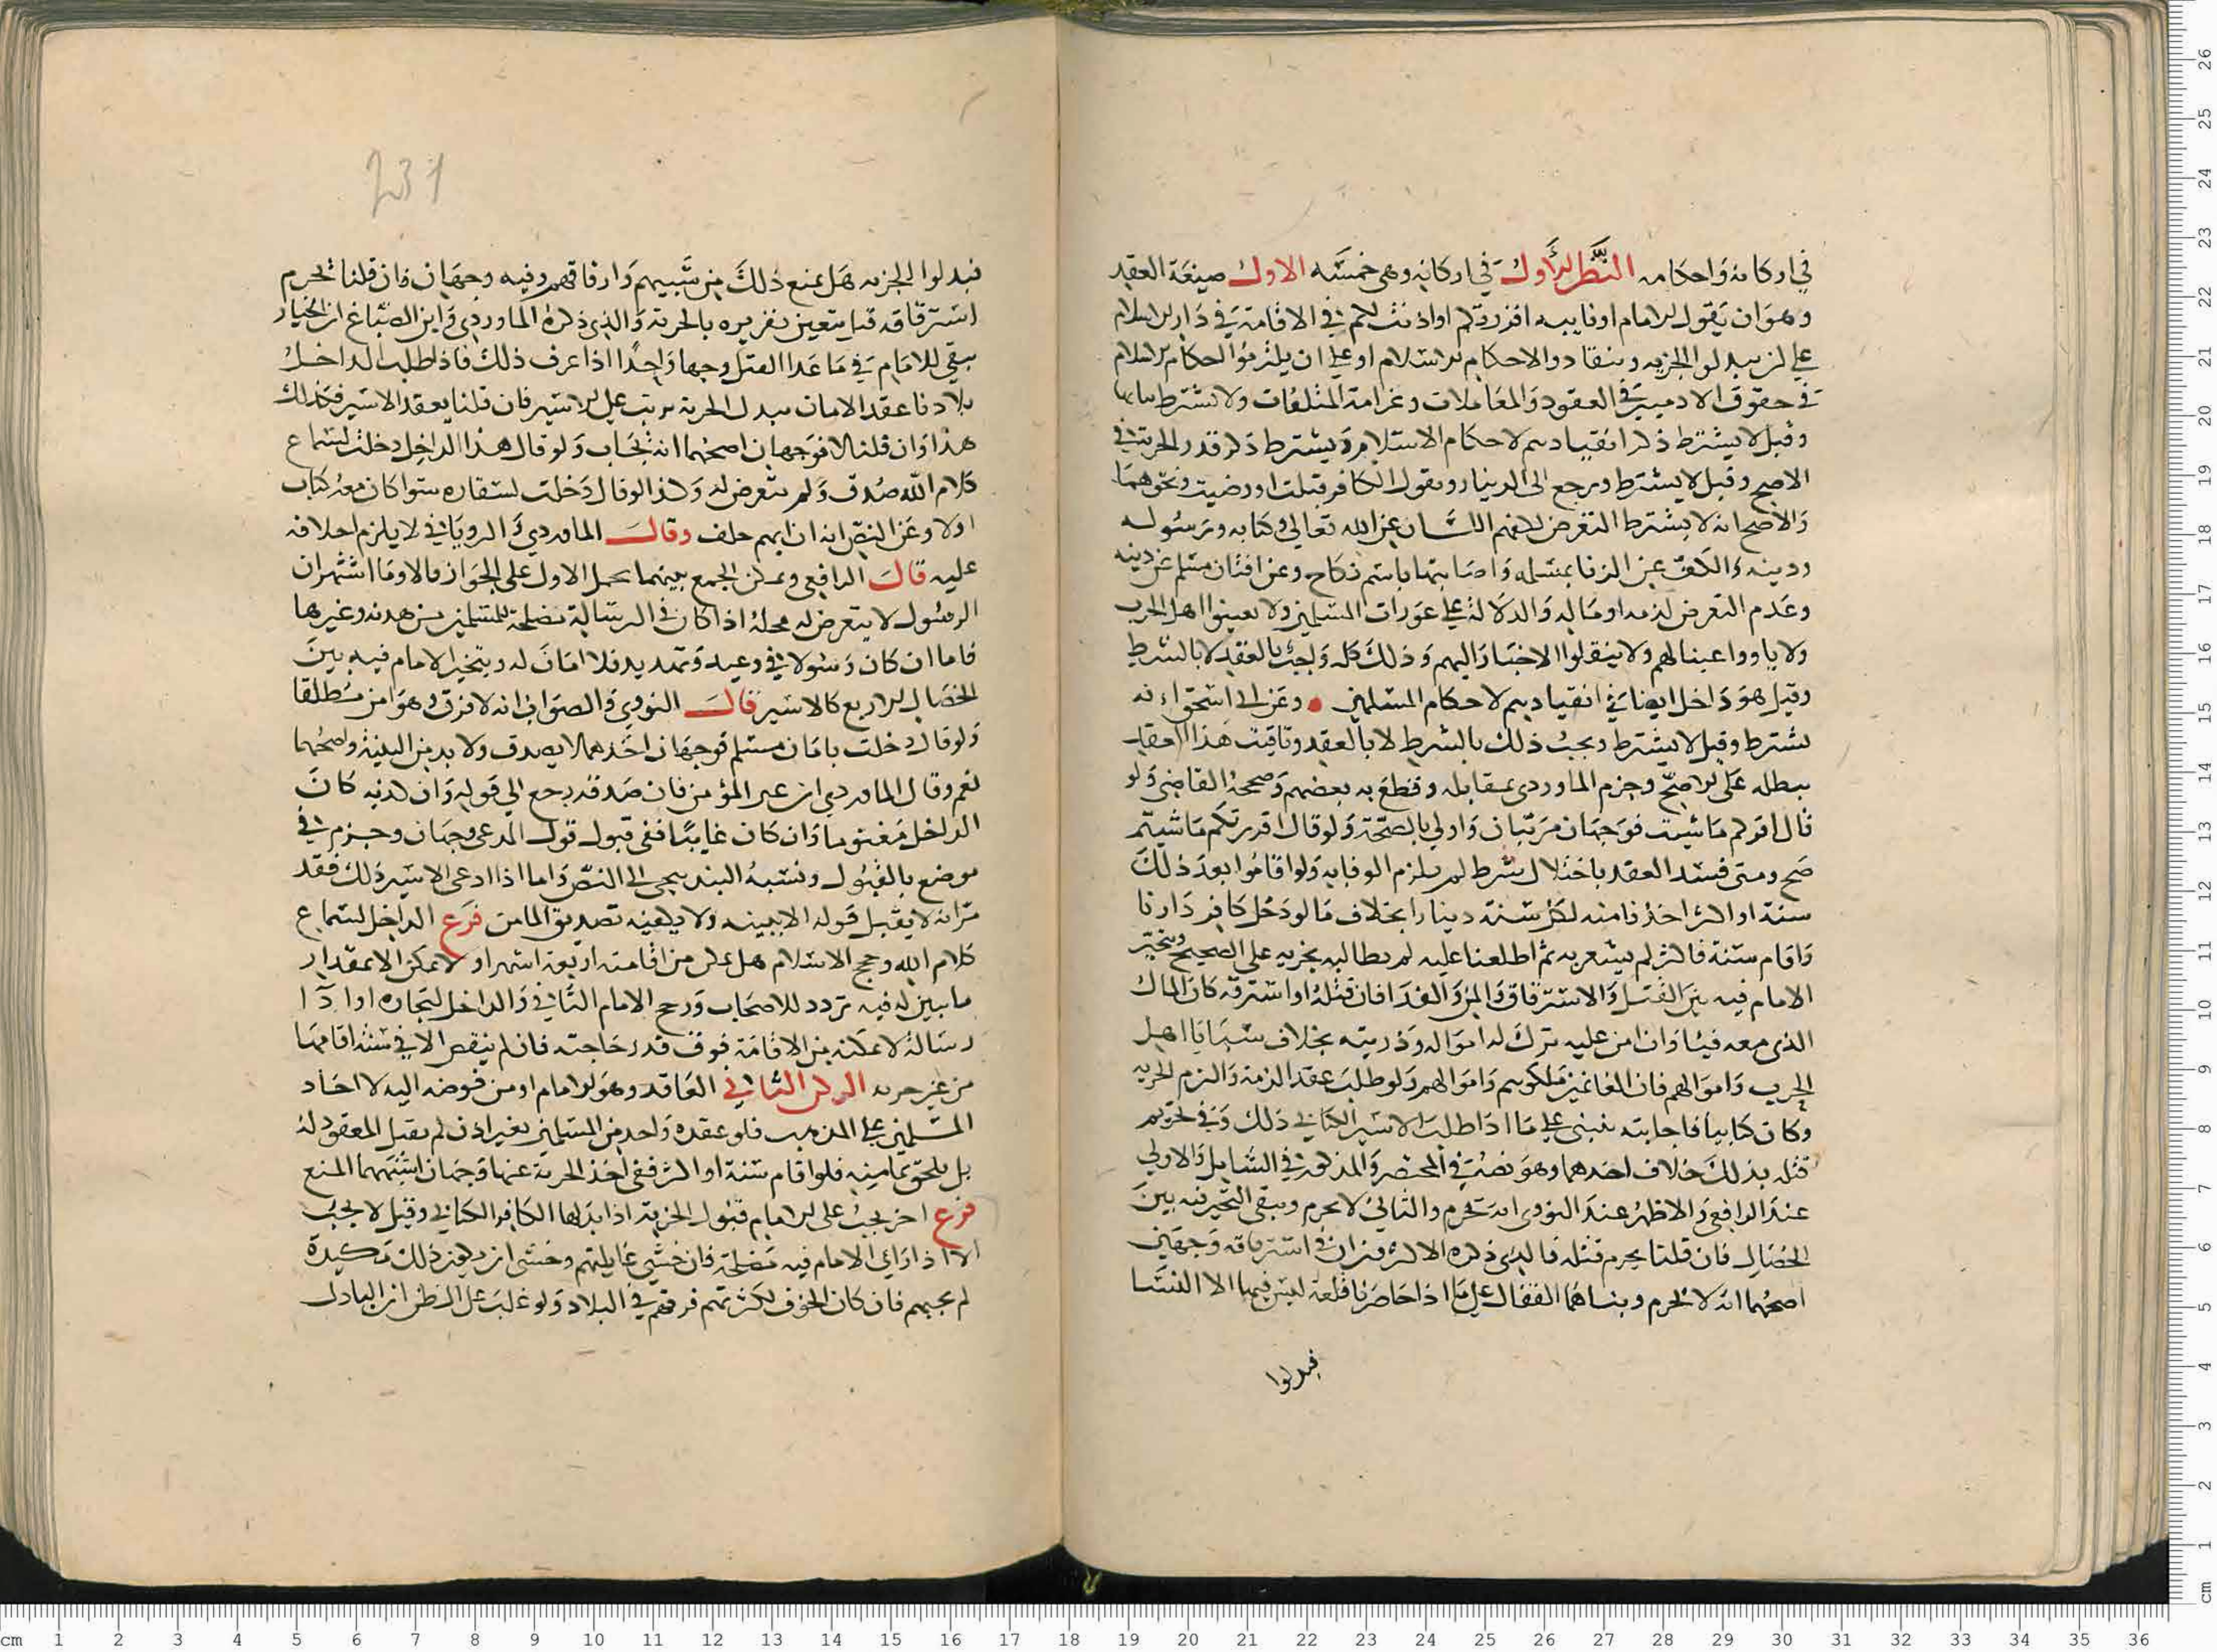 في اركانه واحكامه النظر الأول في اركانه وهي خمسه الاول صيغة العقد
وهو ان يقول الامام او نايبه اقررتكم او اذنت لكم في الاقامة في دار الاسلام
على ان يبدلوا الجزيه وينقادوا لاحكام الاسلام او على ان يلتزموا احكام الاسلام
في حقوق الادميين في العقود والمعاملات وغرامة المتلفات ولا يشترط
وقيل لا يشترط ذكر انقيادهم لاحكام الاسلام ويشترط ذكر قدر الجزية في
الاصح وقيل لا يشترط ويرجع الى الدينار ويقول الكافر قبلت او رضيت ونحوهما
والاصح انه لا يشترط التعرض لكفهم اللسان عن الله تعالى وكتابه ورسوله
ودينه والكف عن الزنا بمسلمه واصابتها باسم نكاح وعن افتان مسلم عن دينه
وعدم التعرض لدمه او ماله والدلالة على عورات المسلمين ولا يعينوا اهل الحرب
ولا ياووا عينا لهم ولا ينقلوا الاخبار اليهم وذلك كله واجب بالعقد لا بالشرط
وقيل هو داخل ايضا في انقيادهم لاحكام المسلمين وعن ابي اسحق انه
يشترط وقيل لا يشترط ويجب ذلك بالشرط لا بالعقد وتاقيت هذا العقد
يبطله على الاصح وجزم الماوردي بمقابله وقطع به بعضهم وصححه القاضي ولو
قال اقركم ما شيت فوجهان مرتبان واولى بالصحة ولو قال اقررتكم ما شيتم
صح ومتى فسد العقد باختلال شرط لم يلزم الوفا به ولو اقاموا بعد ذلك
سنة او اكثر اخذنا منه لكل سنة دينارا بخلاف ما لو دخل كافر دارنا
واقام سنة فاكثر لم يشعر به ثم اطلعنا عليه لم يطالبه بجزيه على الصحيح ويتخير
الامام فيه بين القتل والاسترقاق والمن والفدا فان قتله او استرقه كان المال
الذي معه فيئا وان من عليه ترك له امواله وذريته بخلاف سبايا اهل
الحرب واموالهم فان الغانمين ملكوهم واموالهم ولو طلب عقد الذمة والتزم الجزيه
وكان كتابيا فاجابته تنبني على ما اذا طلب الاسير الكتابي ذلك وفي تحريم
قتله بذلك خلاف احدهما وهو نصه في المختصر والمذكور في الشامل والاولى
عند الرافعي والاظهر عند النووي انه يحرم والثاني لا يحرم ويبقى التخير فيه بين
الخصال فان قلنا يحرم قتله فالذي ذكره الاكثرون ان في استرقاقه وجهين
اصحهما انه لا يحرم وبناهما القفال على ما اذا حاصرنا قلعة ليس فيها الا النسا
فبدلوا
فبدلوا الجزيه هل يمنع ذلك من سبيهم وارقاقهم وفيه وجهان فان قلنا تحرم
استرقاقه فيتعين تقريره بالجزية والذي ذكره الماوردي وابن الصباغ ان الخيار
يبقى للامام في ما عدا القتل وجها واحدا اذا عرف ذلك فاذا طلب الداخل
بلادنا عقد الامان ببدل الجزية ترتب على الاسير فان قلنا يعقد الاسير فكذلك
هذا وان قلنا لا فوجهان اصحهما انه يجاب ولو قال هذا الداخل دخلت لسماع
كلام الله صدق ولم يتعرض له وكذا لو قال دخلت لسفاره سوا كان معه كتاب
اولا وعن النص انه ان اتهم حلف وقال الماوردي والروياني لا يلزم احلافه
عليه قال الرافعي ويمكن الجمع بينهما بحمل الاول على الجواز قالا وما اشتهر ان
الرسول لا يتعرض له محله اذا كان في الرسالة مصلحة للمسلمين من هدنة وغيرها
فاما ان كان رسولا في وعيد وتهديد فلا امان له ويتخير الامام فيه بين
الخصال الاربع كالاسير قال النووي والصواب انه لا فرق وهو امن مطلقا
ولو قال دخلت بامان مسلم فوجهان احدهما لا يصدق ولا بد من البينة واصحهما
نعم وقال الماوردي ان عين المؤمن فان صدقه رجع الى قوله وان كذبه كان
الداخل مغنوما وان كان غايبا ففي قبول قول المدعي وجهان وجزم في
موضع بالقبول ونسبه البندنيجي الى النص واما اذا ادعى الاسير ذلك فقد
مر انه لا يقبل قوله الا ببينه ولا يكفيه تصديق المامن فرع الداخل لسماع
كلام الله وحجج الاسلام هل يمكن من اقامته اربعة اشهر او لا يمكن الا مقدار
ما يبين له فيه تردد للاصحاب ورجح الامام الثاني والداخل لتجاره او ادا
رسالة لا يمكنه من الاقامة فوق قدر حاجته فان لم ينقص الا في سنة اقامها
من غير جزيه الركن الثاني العاقد وهو الامام او من فوضه اليه لا احاد
المسلمين على المذهب فلو عقده واحد من المسلمين بغير اذن لم يقبل المعقود له
بل يلحق بمامنه فلو اقام سنة او اكثر ففي اخذ الجزية عنها وجهان اشبههما المنع
فرع اخر يجب على الامام قبول الجزية اذا بدلها الكافر الكتابي وقيل لا يجب
الا اذا راى الامام فيه مصلحة فان خشي غايلتهم وخشي ان يكون ذلك مكيدة
لم يجبهم فان كان الخوف لكثرتهم فرقهم في البلاد ولو غلب على الظن ان البادل